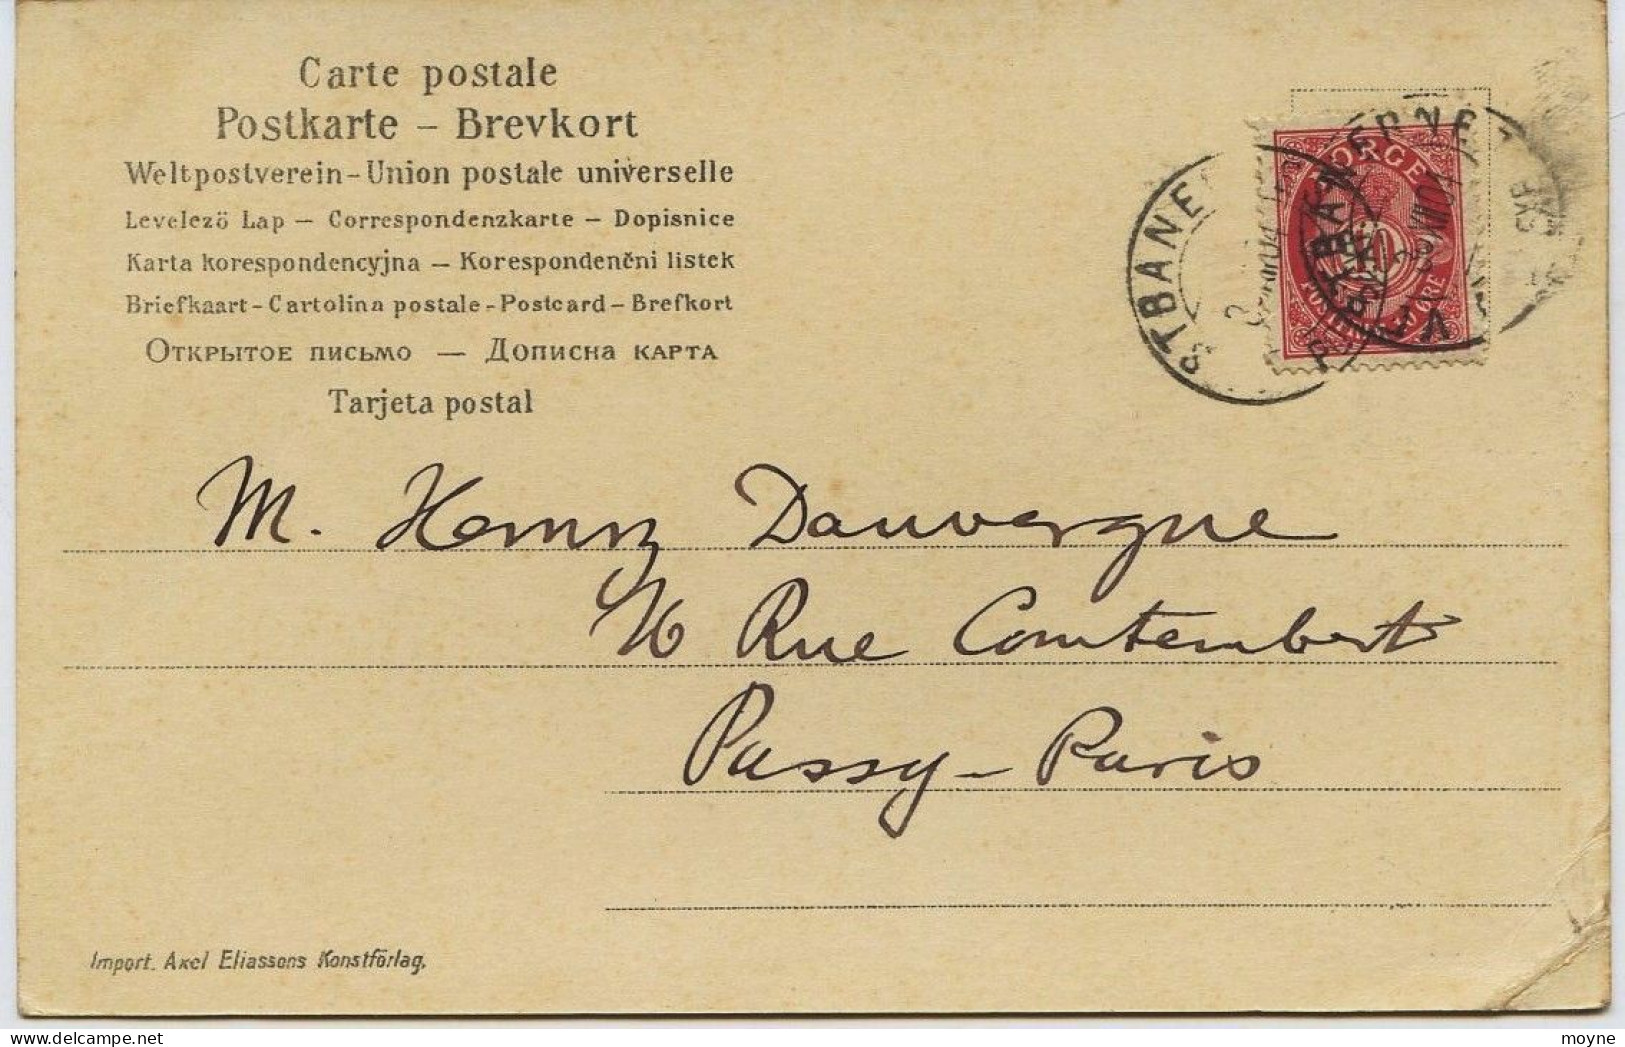 Carte postale
Postkarte – Brevkort
Weltpostverein – Union postale universelle
Levelező Lap – Correspondenzkarte – Dopisnice
Karta korespondencyjna – Korespondenčni listek
Briefkaart – Cartolina postale – Postcard – Brefkort
Открытое письмо — Дописна карта
Tarjeta postal
NORGE
M. Henry Dauvergne
16 Rue Comtembert
Passy – Paris
Import. Axel Eliassons Konstförlag.
moyne